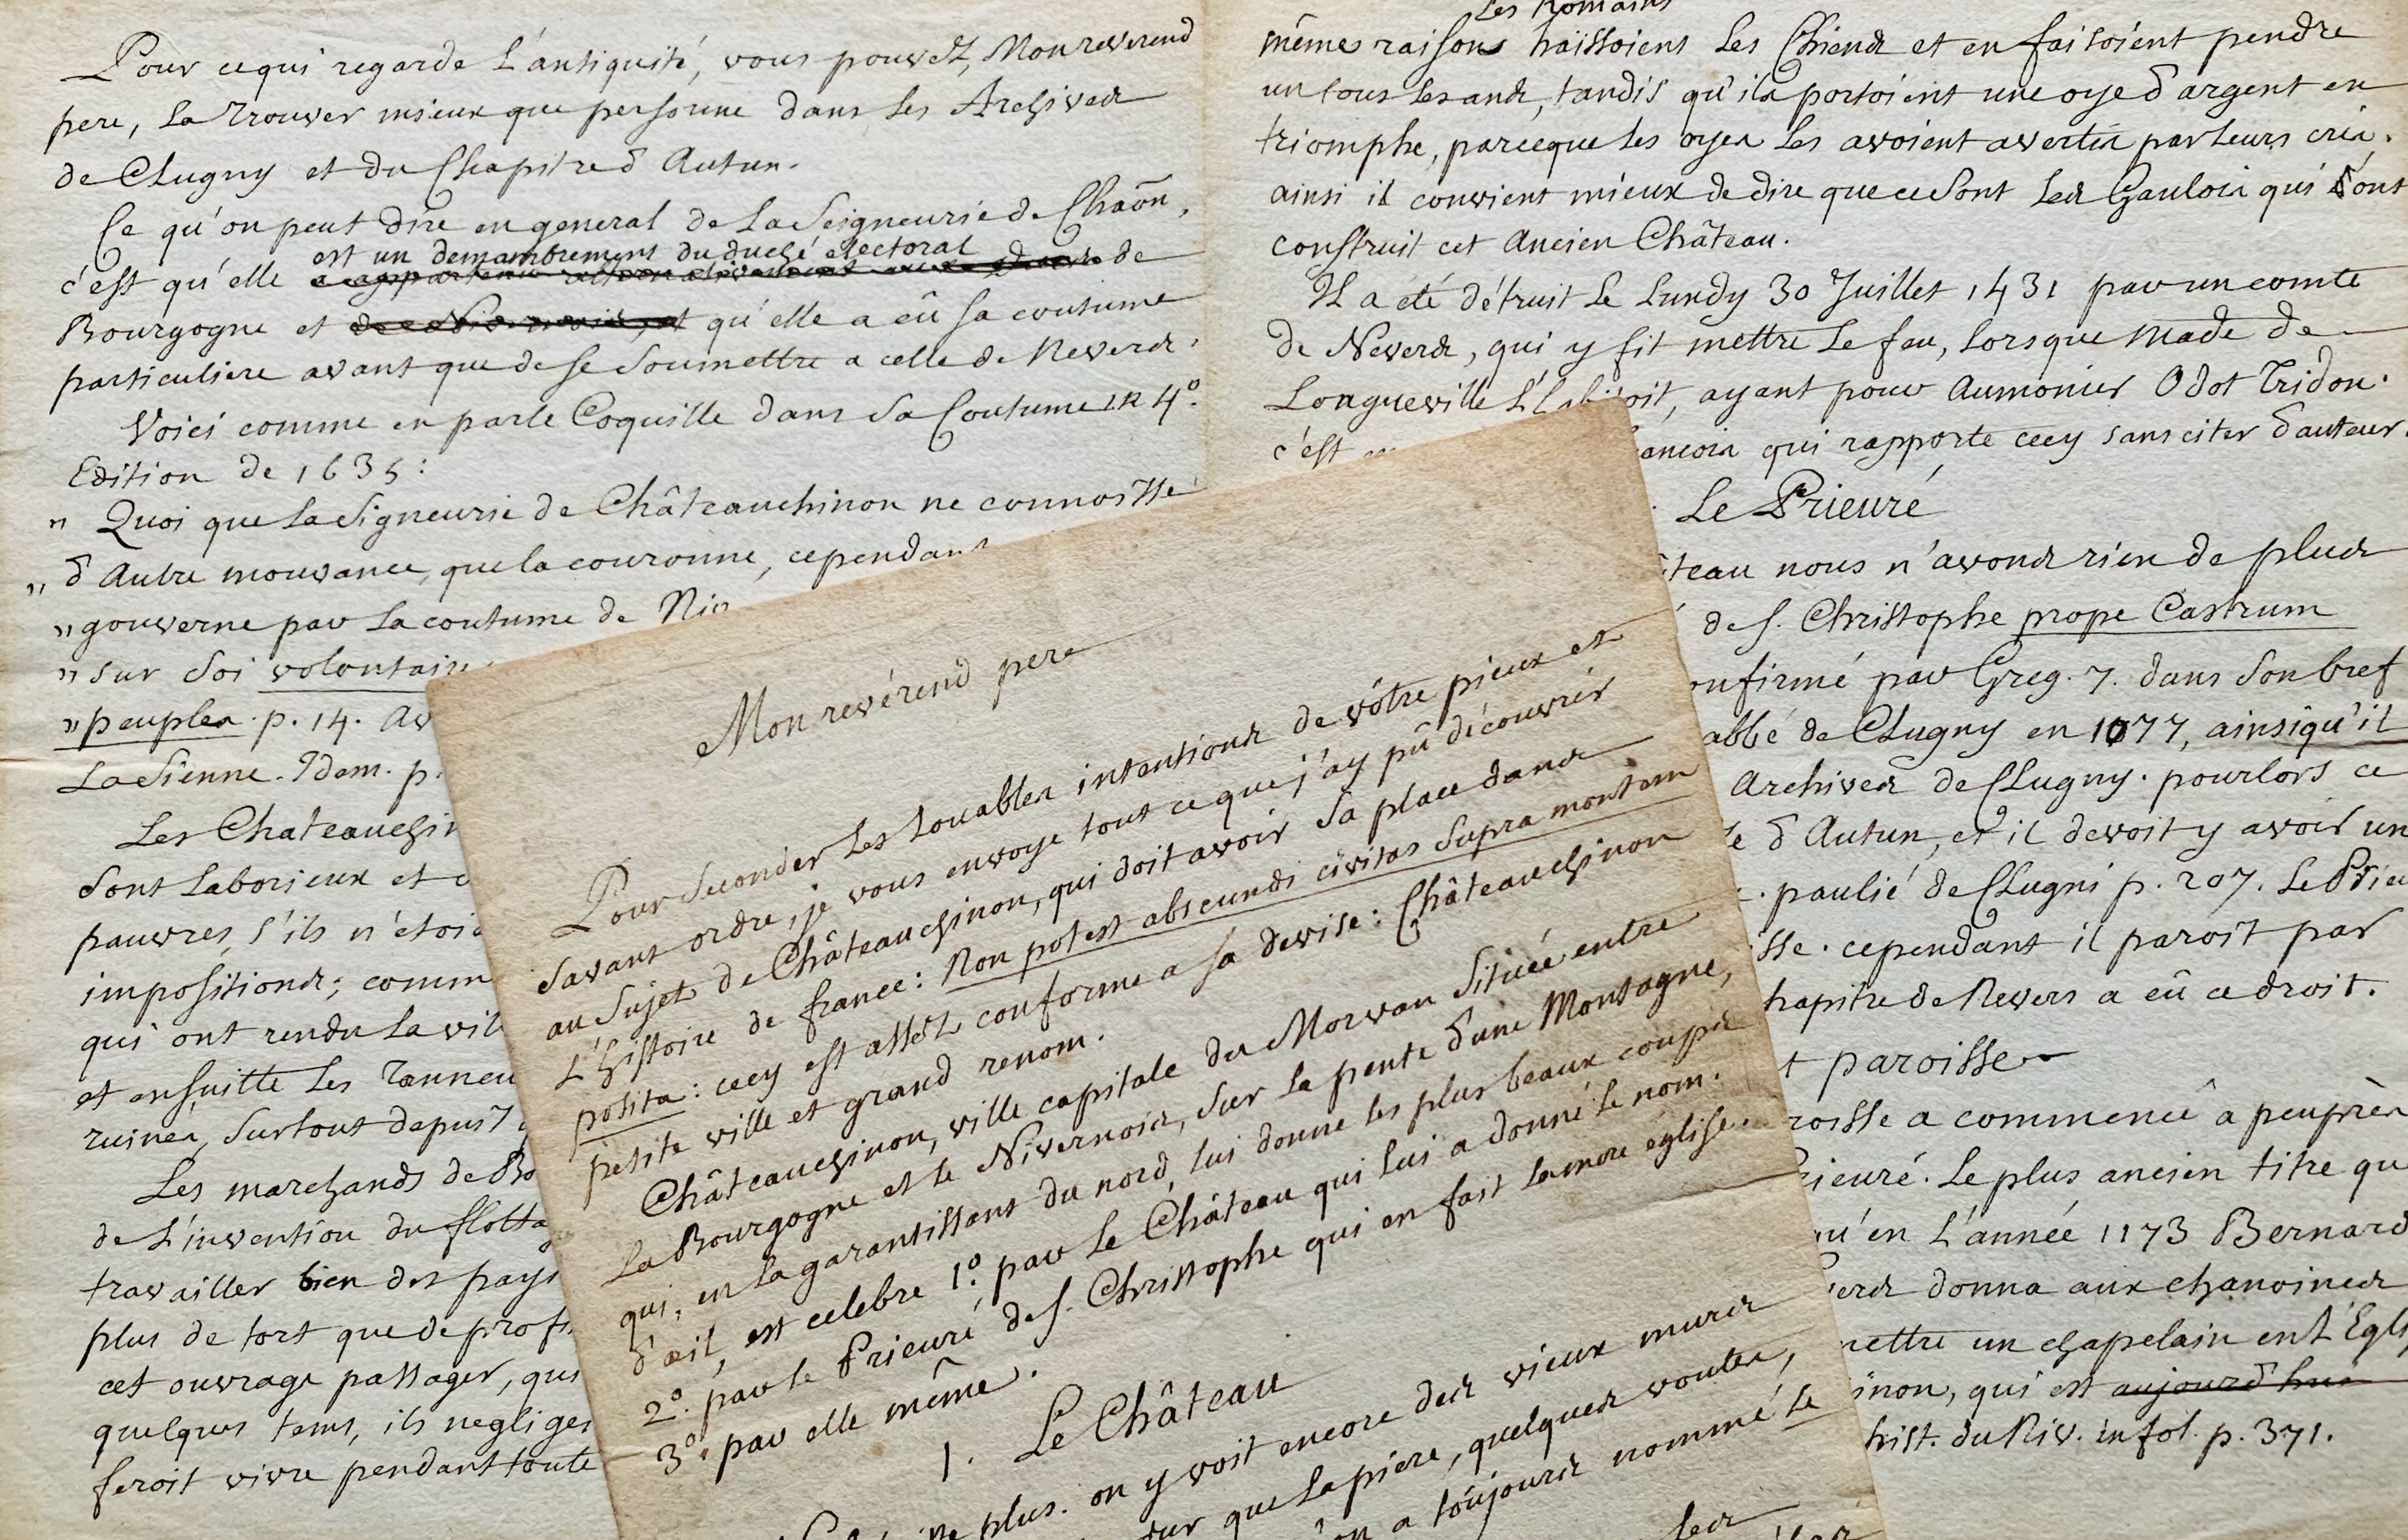 Pour ce qui regarde L'antiquité, vous pouvez, Mon reverend
pere, La trouver mieux que personne dans les Archives
de Clugny et du Chapitre d'Autun.
Ce qu'on peut dire en general de La Seigneurie de Chaõn,
est un demambrement du duché electoral
c'est qu'elle de
Bourgogne et qu'elle a eû sa coutume
particuliere avant que de se Soumettre a celle de Nevers.
Voici comme en parle Coquille dans Sa Coutume in 4º.
Edition de 1635:
" Quoi que La Signeurie de Châteauchinon ne connoisse
" d'Autre mouvance, que la couronne, cependant
" gouverne par La coutume de
" sur Soi volontaire
" peuples. p. 14.
La Sienne. Idem. p.
Les Chateauchin
Sont Laborieux et
pauvres, s'ils n'étoi
impositions; comm
qui ont rendu La vil
et ensuitte Les Tanneu
ruines, Surtout depuis
Les marchands de Bo
de L'invention du flotta
travailler bien des pays
plus de tort que de profi
cet ouvrage passager, qui
quelques tems, ils neglige
feroit vivre pendant toute
Les Romains
mêmes raisons haïssoient Les Chiens et en faisoient pendre
un tous les ans, tandis qu'ils portoient une oye d'argent en
triomphe, parceque les oyes Les avoient avertis par leurs cris.
ainsi il convient mieux de dire que ce Sont Les Gaulois qui ont
construit cet Ancien Château.
Il a eté détruit Le Lundy 30 Juillet 1431 par un comte
de Nevers, qui y fit mettre Le feu, Lorsque Made de
Longueville L'habitoit, ayant pour Aumonier Odot Tridon.
c'est ancois qui rapporte cecy sans citer d'auteur.
Le Prieuré
teau nous n'avons rien de plus
de S. Christophe prope Castrum
onfirmé par Greg. 7. dans Son bref
abbé de Clugny en 1077, ainsi qu'il
Archives de Clugny. pourlors ce
d'Autun, et il devoit y avoir un
. paulié de Clugni p. 207. Le Prieu
sse. cependant il paroit par
hapitre de Nevers a eû ce droit.
t paroisse
roisse a commencé a peuprès
rieuré. Le plus ancien titre qu
qu'en L'année 1173 Bernard
vers donna aux chanoines
mettre un chapelain en L'Egli
inon, qui est aujourd'hui
hist. du Niv. in fol. p. 371.
Mon revérend pere
Pour Seconder Les Louables intentions de vôtre pieux et
Savant ordre, je vous envoye tout ce que j'ay pû découvrir
au Sujet de Châteauchinon, qui doit avoir Sa place dans
L'histoire de france: Non potest abscundi civitas Supra montem
posita: cecy est assez conforme a sa devise: Châteauchinon
petite ville et grand renom.
Châteauchinon, ville capitale du Morvan Située entre
La Bourgogne et le Nivernois, Sur La pente d'une Montagne,
qui, en La garantissant du nord, lui donne les plus beaux coups
d'œil, est celebre 1º. par Le Château qui lui a donné le nom.
2º. par le Prieuré de S. Christophe qui en fait la mere église.
3º. par elle même.
1. Le Château
plus. on y voit encore des vieux murs
dur que La piere, quelques voutes,
on a toûjours nommé Le